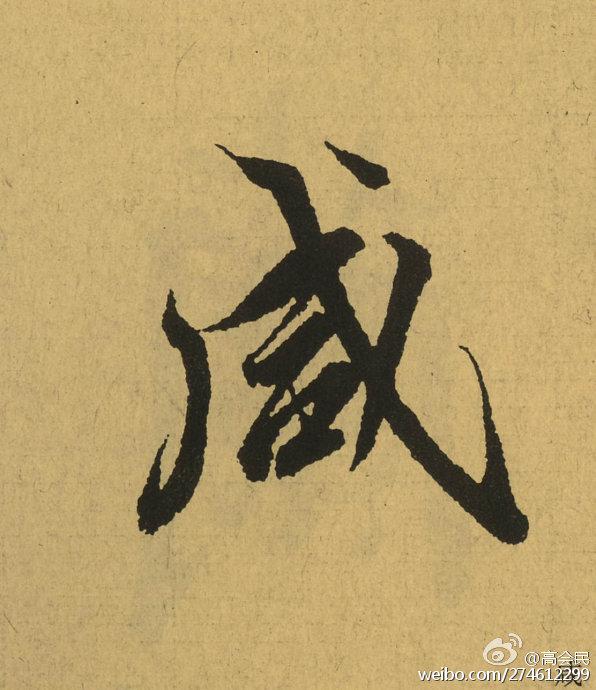 咸
@高会民
weibo.com/274612299